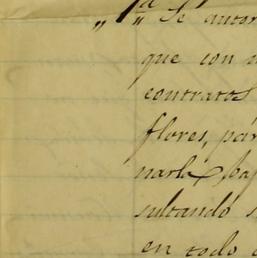 „ 1ª „ Se autor
que con
contratos
flores, pár
narla, baj
sultando s
en todo